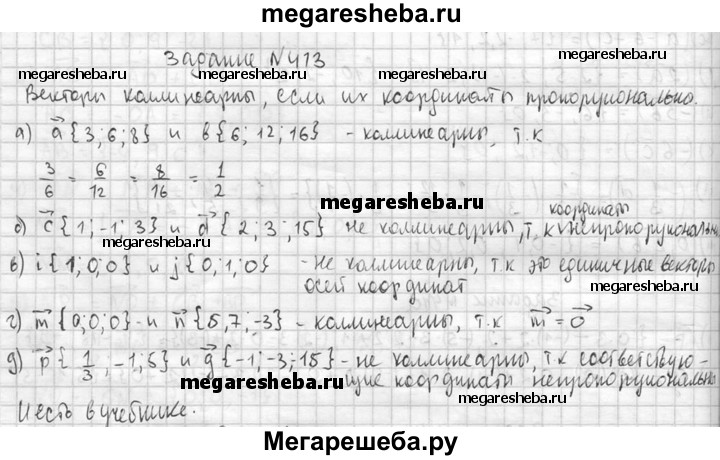 megaresheba.ru
Задание №413
megaresheba.ru megaresheba.ru
Вектори коллинеарны, если их координаты пропорционально.
а) a⃗ {3; 6; 8} и b{6; 12; 16} - коллинеарны, т.к
3/6 = 6/12 = 8/16 = 1/2
megaresheba.ru
координаты
б) c⃗ {1; -1; 3} и d⃗ {2; 3; 15} не коллинеарны, т.к непропорциональны
в) i{1; 0; 0} и j{0; 1; 0} - не коллинеарны, т.к это единичные векторы
осей координат
г) m⃗ {0; 0; 0} - и n⃗ {5, 7; -3} - коллинеарны, т.к m⃗ = 0⃗
д) p⃗ {1/3; -1; 5} и g⃗ {-1; -3; -15} - не коллинеарны, т.к соответствую-
щие координаты непропорциональны
megaresheba.ru megaresheba.ru
И есть в учебнике.
Мегарешеба.ру